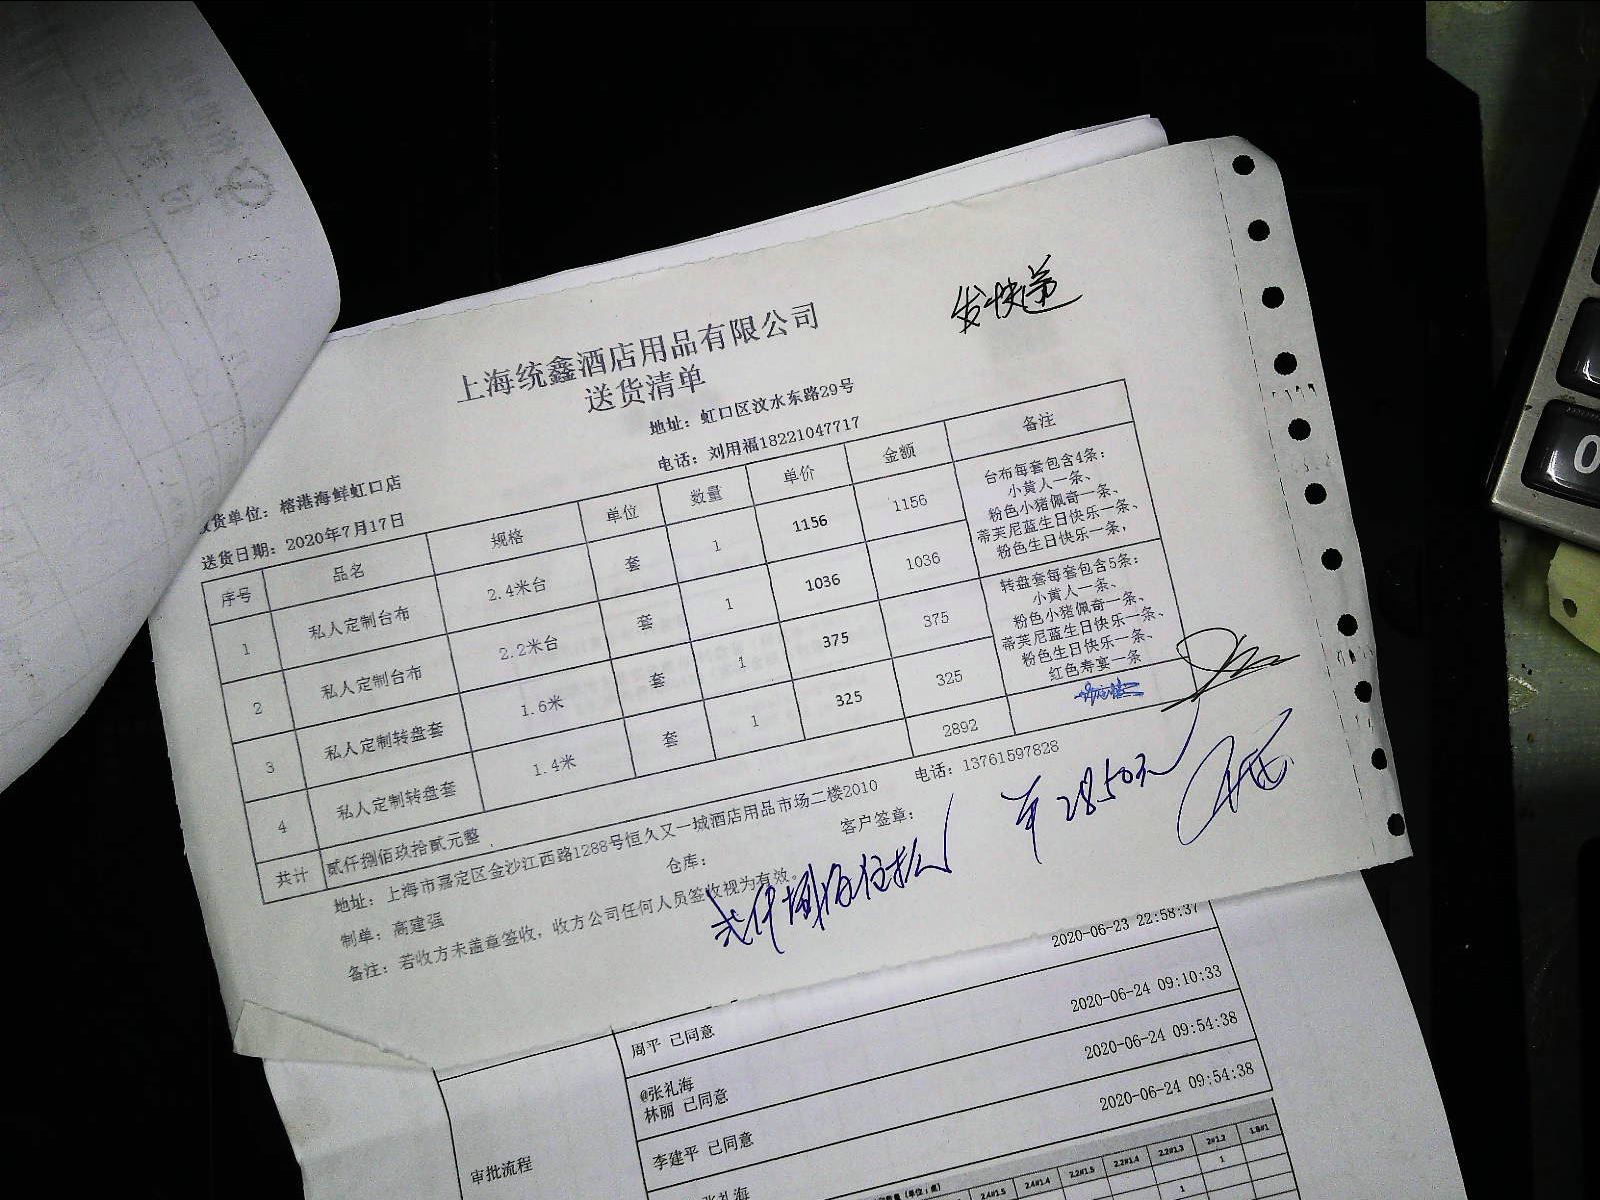 发快递
上海统鑫酒店用品有限公司
送货清单
地址: 虹口区汶水东路29号
货单位: 榕港海鲜虹口店
电话: 刘用福18221047717
送货日期: 2020年7月17日
序号 品名 规格 单位 数量 单价 金额 备注
1 私人定制台布 2.4米台 套 1 1156 1156
2 私人定制台布 2.2米台 套 1 1036 1036
3 私人定制转盘套 1.6米 套 1 375 375
4 私人定制转盘套 1.4米 套 1 325 325
台布每套包含4条:
小黄人一条、
粉色小猪佩奇一条、
蒂芙尼蓝生日快乐一条、
粉色生日快乐一条,
转盘套每套包含5条:
小黄人一条、
粉色小猪佩奇一条、
蒂芙尼蓝生日快乐一条、
粉色生日快乐一条、
红色寿宴一条
共计 贰仟捌佰玖拾贰元整 2892
地址: 上海市嘉定区金沙江西路1288号恒久又一城酒店用品市场二楼2010 电话: 13761597828
制单: 高建强 仓库: 客户签章:
备注: 若收方未盖章签收, 收方公司任何人员签收视为有效。
2850元
2020-06-23 22:58:37
周平 已同意 2020-06-24 09:10:33
@张礼海
林丽 已同意 2020-06-24 09:54:38
李建平 已同意 2020-06-24 09:54:38
审批流程
张礼海
(单位:桌) 2.4#1.5 2.4#1.4 2.2#1.5 2.2#1.4 2.2#1.3 2#1.2 1.8#1
1
1